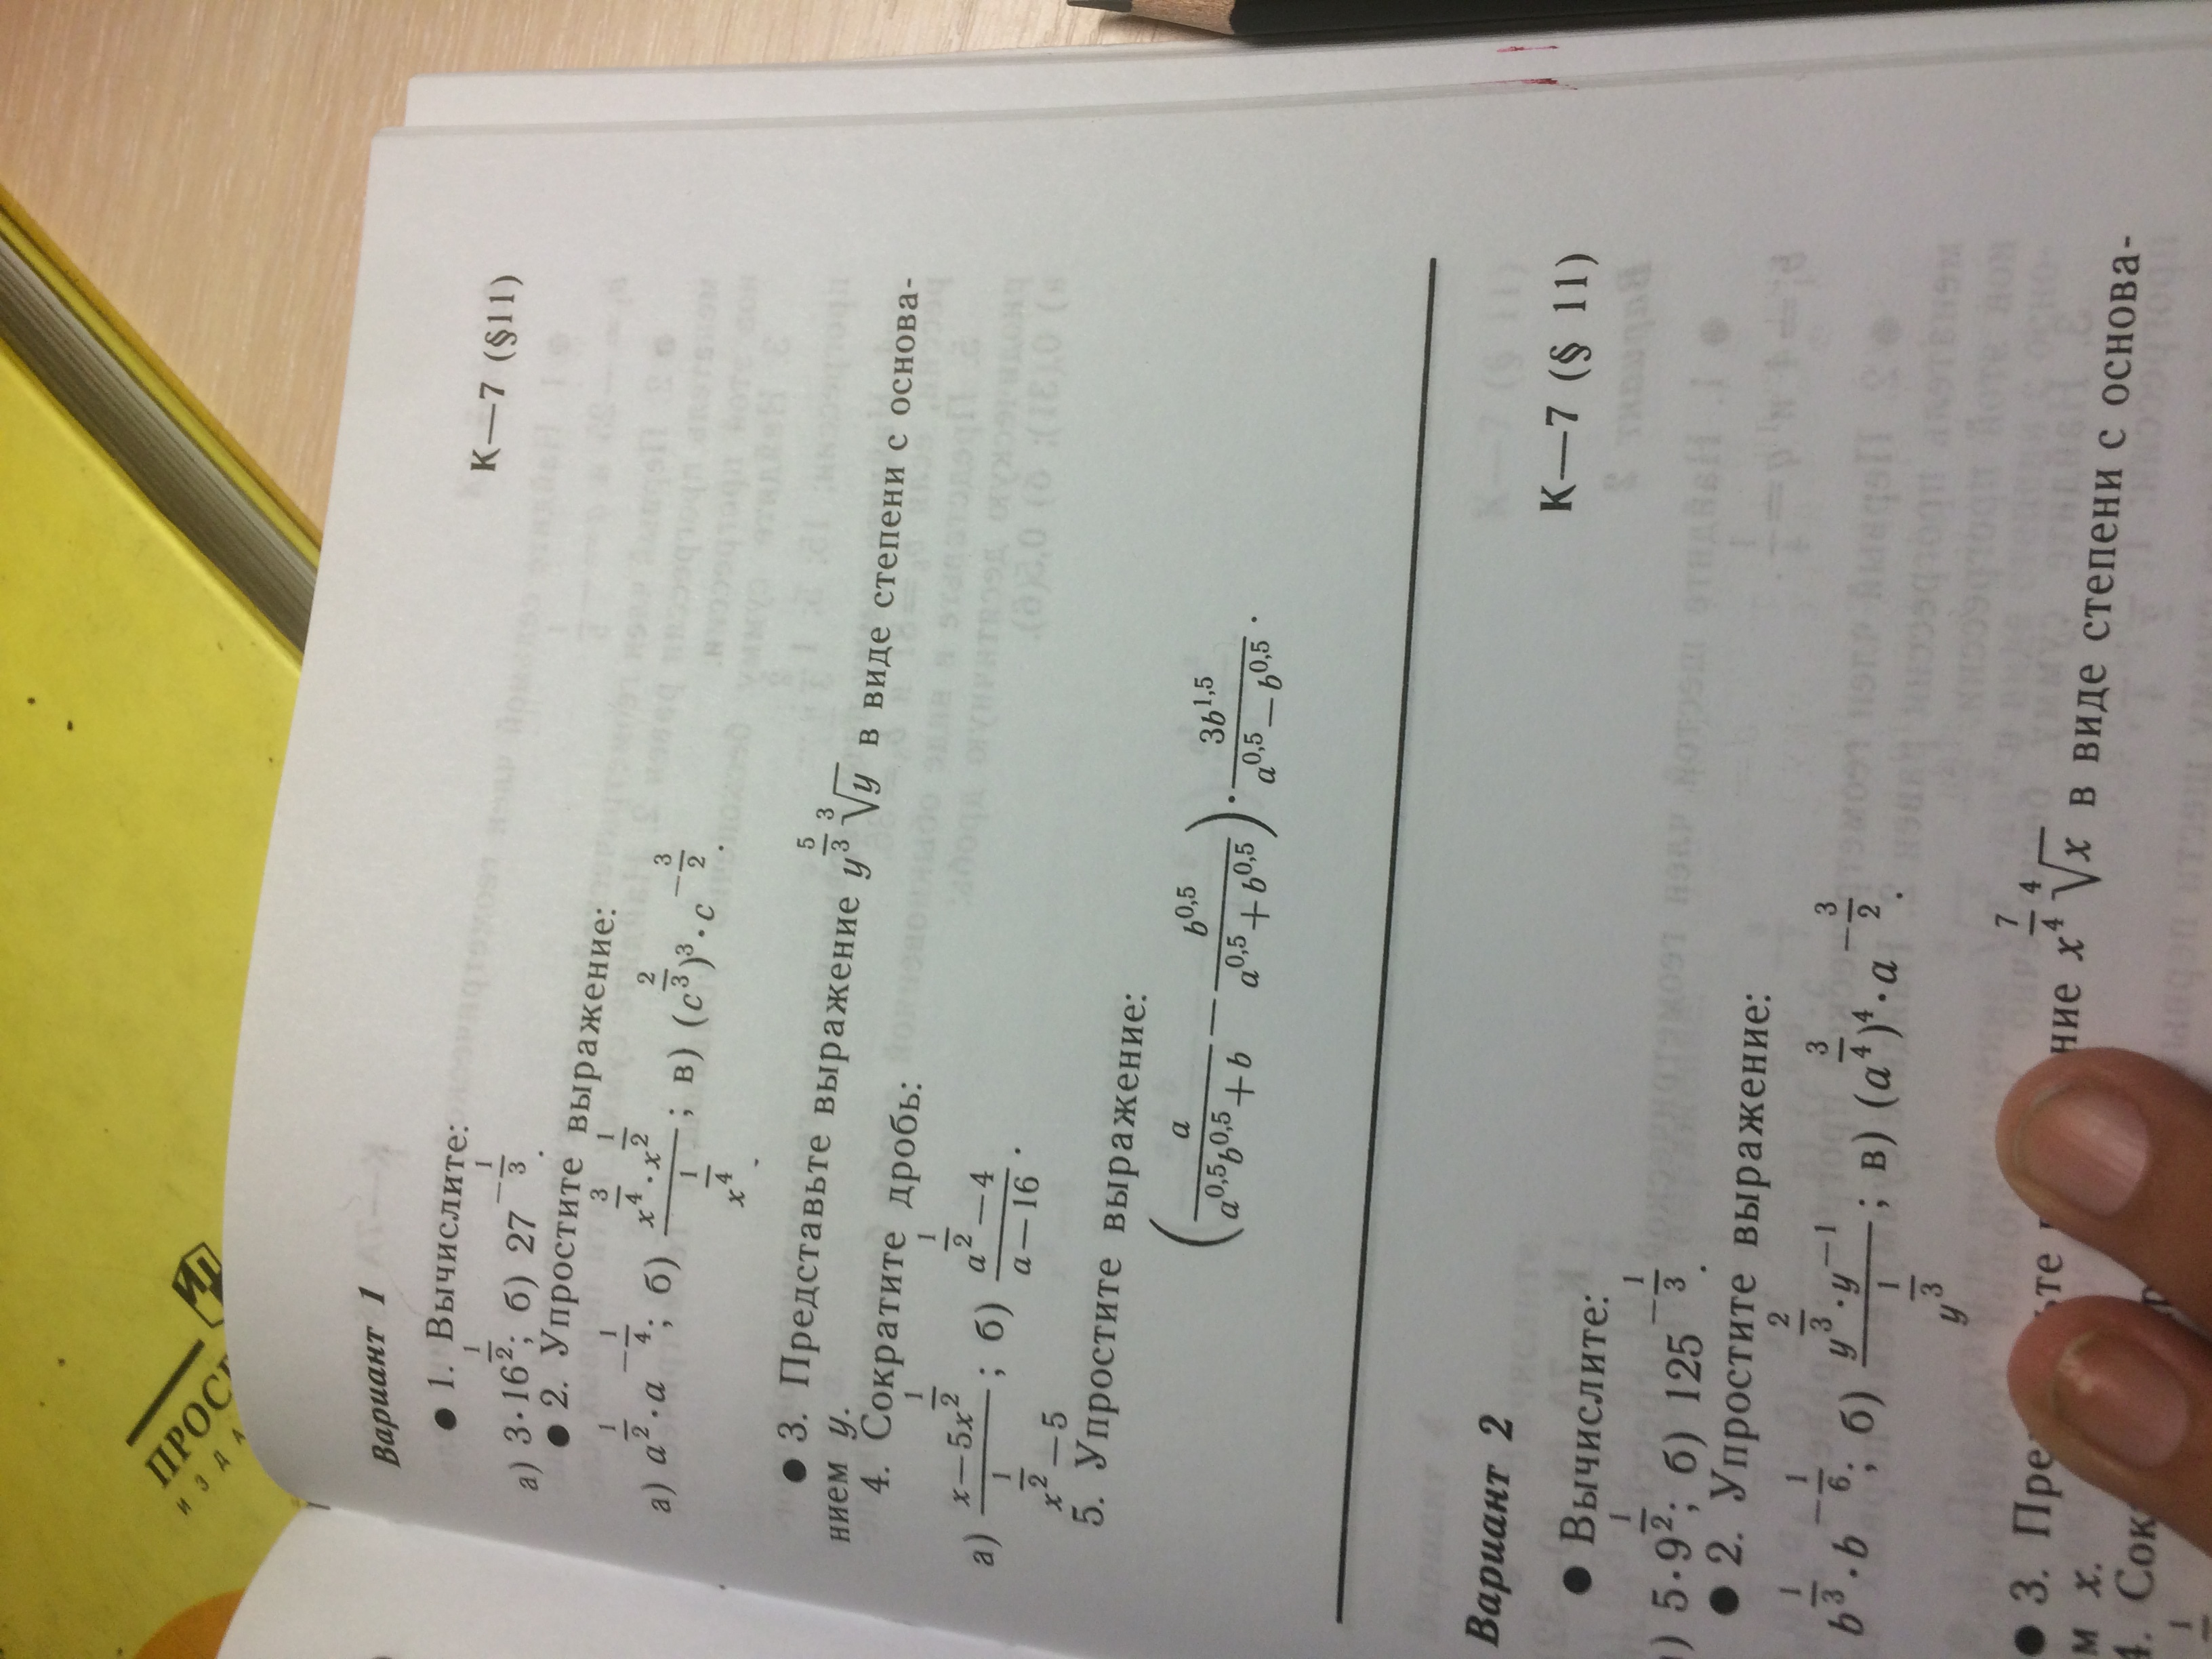 К—7 (§11)
Вариант 1
● 1. Вычислите:
а) 3·16^{1/2}; б) 27^{-1/3}.
● 2. Упростите выражение:
а) a^{1/2}·a^{-1/4}; б) \frac{x^{3/4}·x^{1/2}}{x^{1/4}}; в) (c^{2/3})^3·c^{-3/2}.
● 3. Представьте выражение y^{5/3}\sqrt[3]{y} в виде степени с основа-
нием y.
4. Сократите дробь:
а) \frac{x−5x^{1/2}}{x^{1/2}−5}; б) \frac{a^{1/2}−4}{a−16}.
5. Упростите выражение:
(\frac{a}{a^{0,5}b^{0,5}+b} − \frac{b^{0,5}}{a^{0,5}+b^{0,5}})·\frac{3b^{1,5}}{a^{0,5}−b^{0,5}}.
К—7 (§ 11)
Вариант 2
● Вычислите:
) 5·9^{1/2}; б) 125^{-1/3}.
● 2. Упростите выражение:
b^{1/3}·b^{-1/6}; б) \frac{y^{2/3}·y^{-1}}{y^{1/3}}; в) (a^{3/4})^4·a^{-3/2}.
● 3. Пре ьте ние x^{7/4}\sqrt[4]{x} в виде степени с основа-
м x.
4. Сок
ПРОС
ИЗДА
ИП